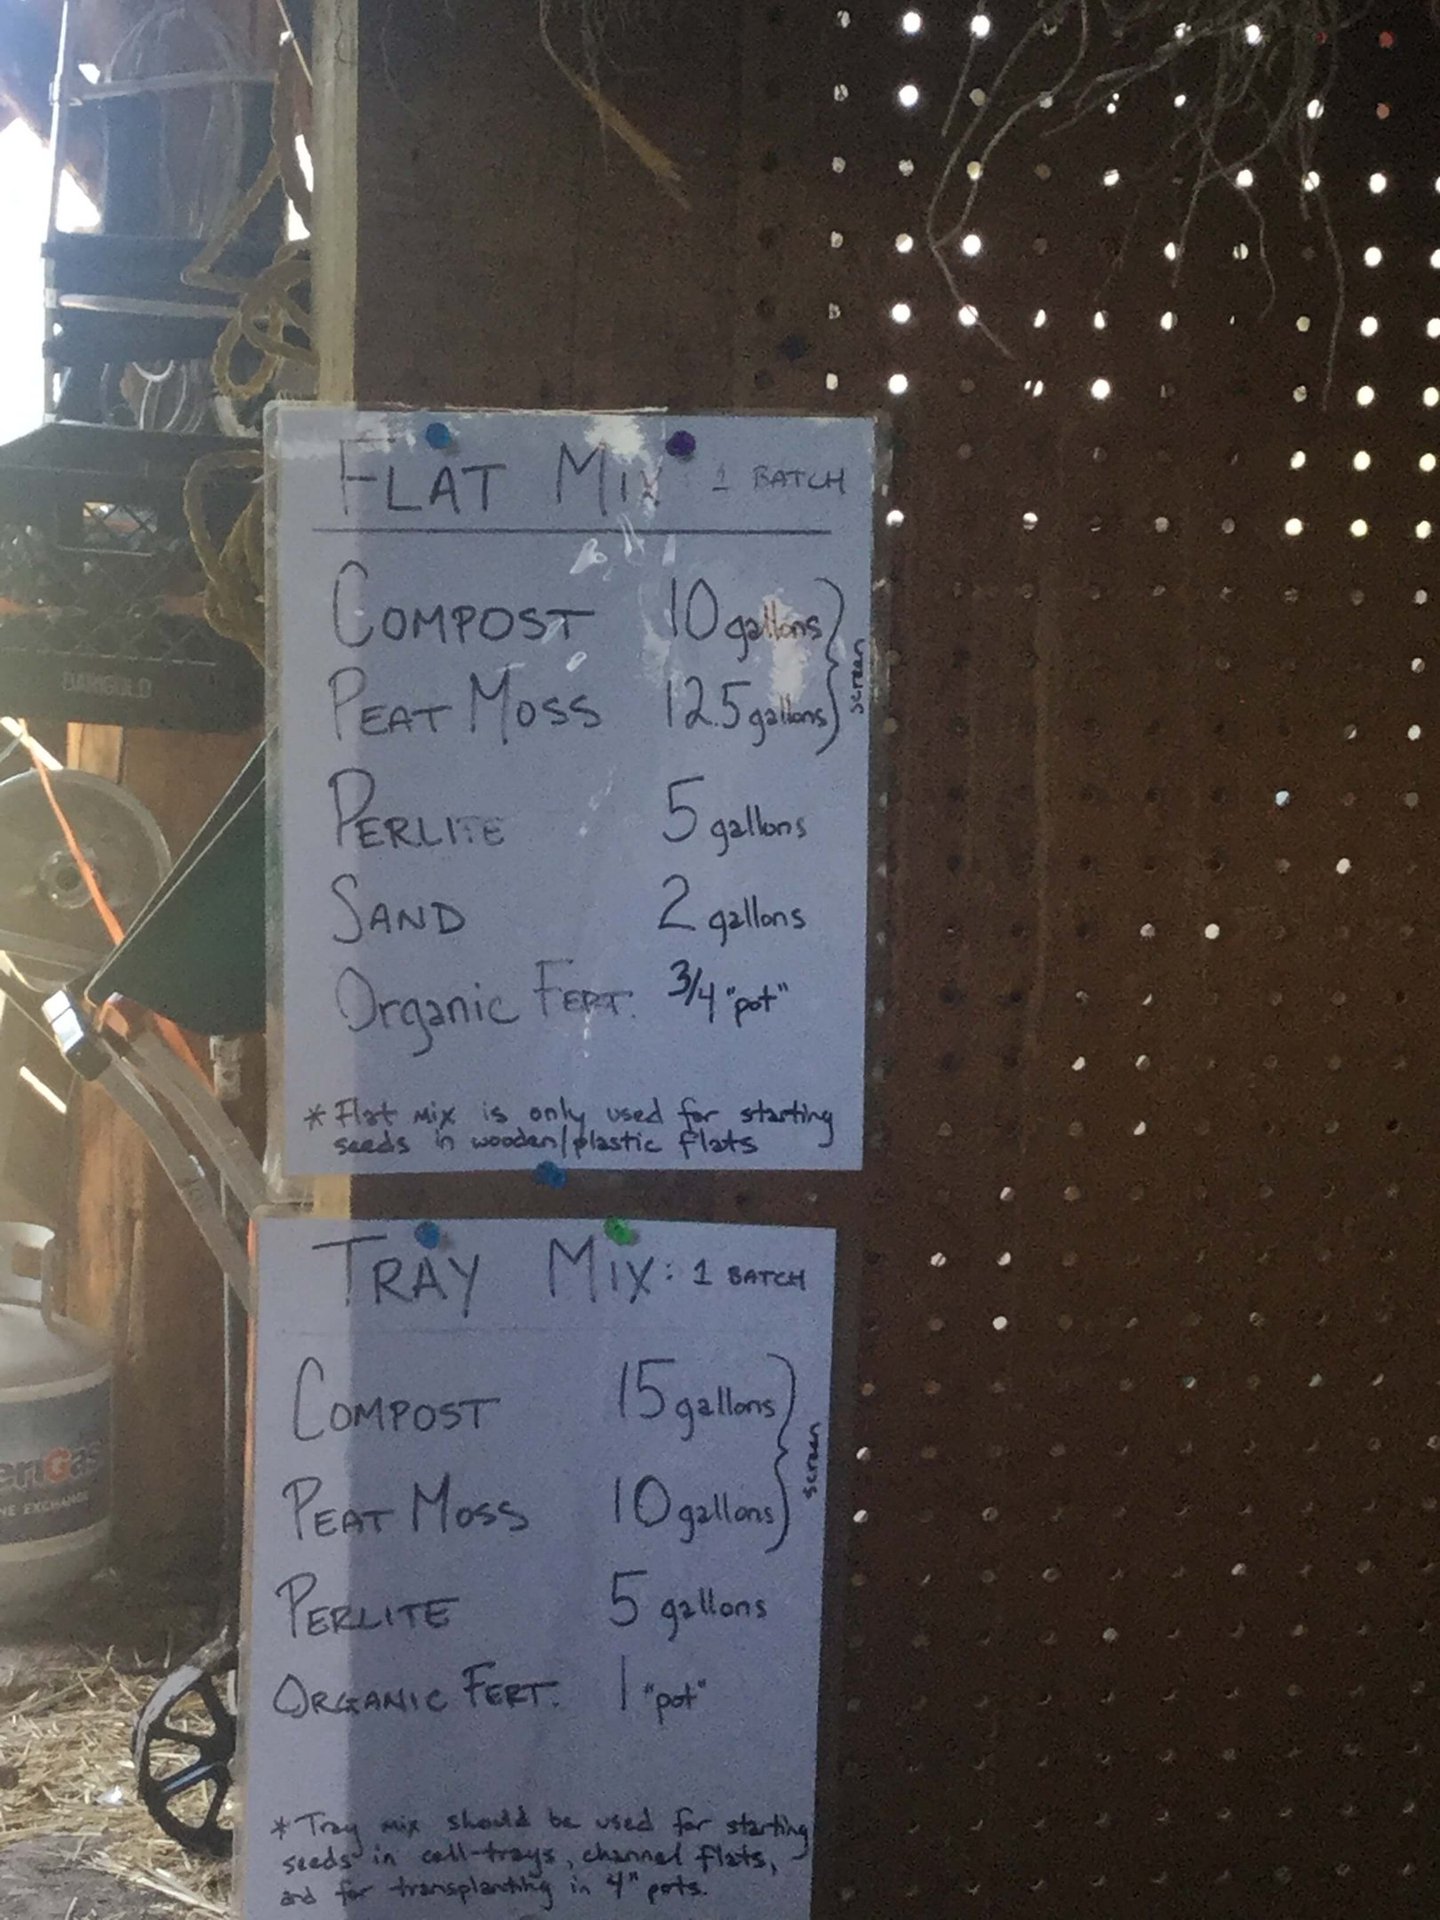 FLAT MIX: 1 BATCH
COMPOST 10 gallons
PEAT MOSS 12.5 gallons
screen
PERLITE 5 gallons
SAND 2 gallons
Organic FERT. 3/4 "pot"
* Flat mix is only used for starting
seeds in wooden/plastic flats
TRAY MIX: 1 BATCH
COMPOST 15 gallons
PEAT MOSS 10 gallons
screen
PERLITE 5 gallons
ORGANIC FERT. 1 "pot"
* Tray mix should be used for starting
seeds in cell-trays, channel flats,
and for transplanting in 4" pots.
DARIGOLD
EXCHANGE